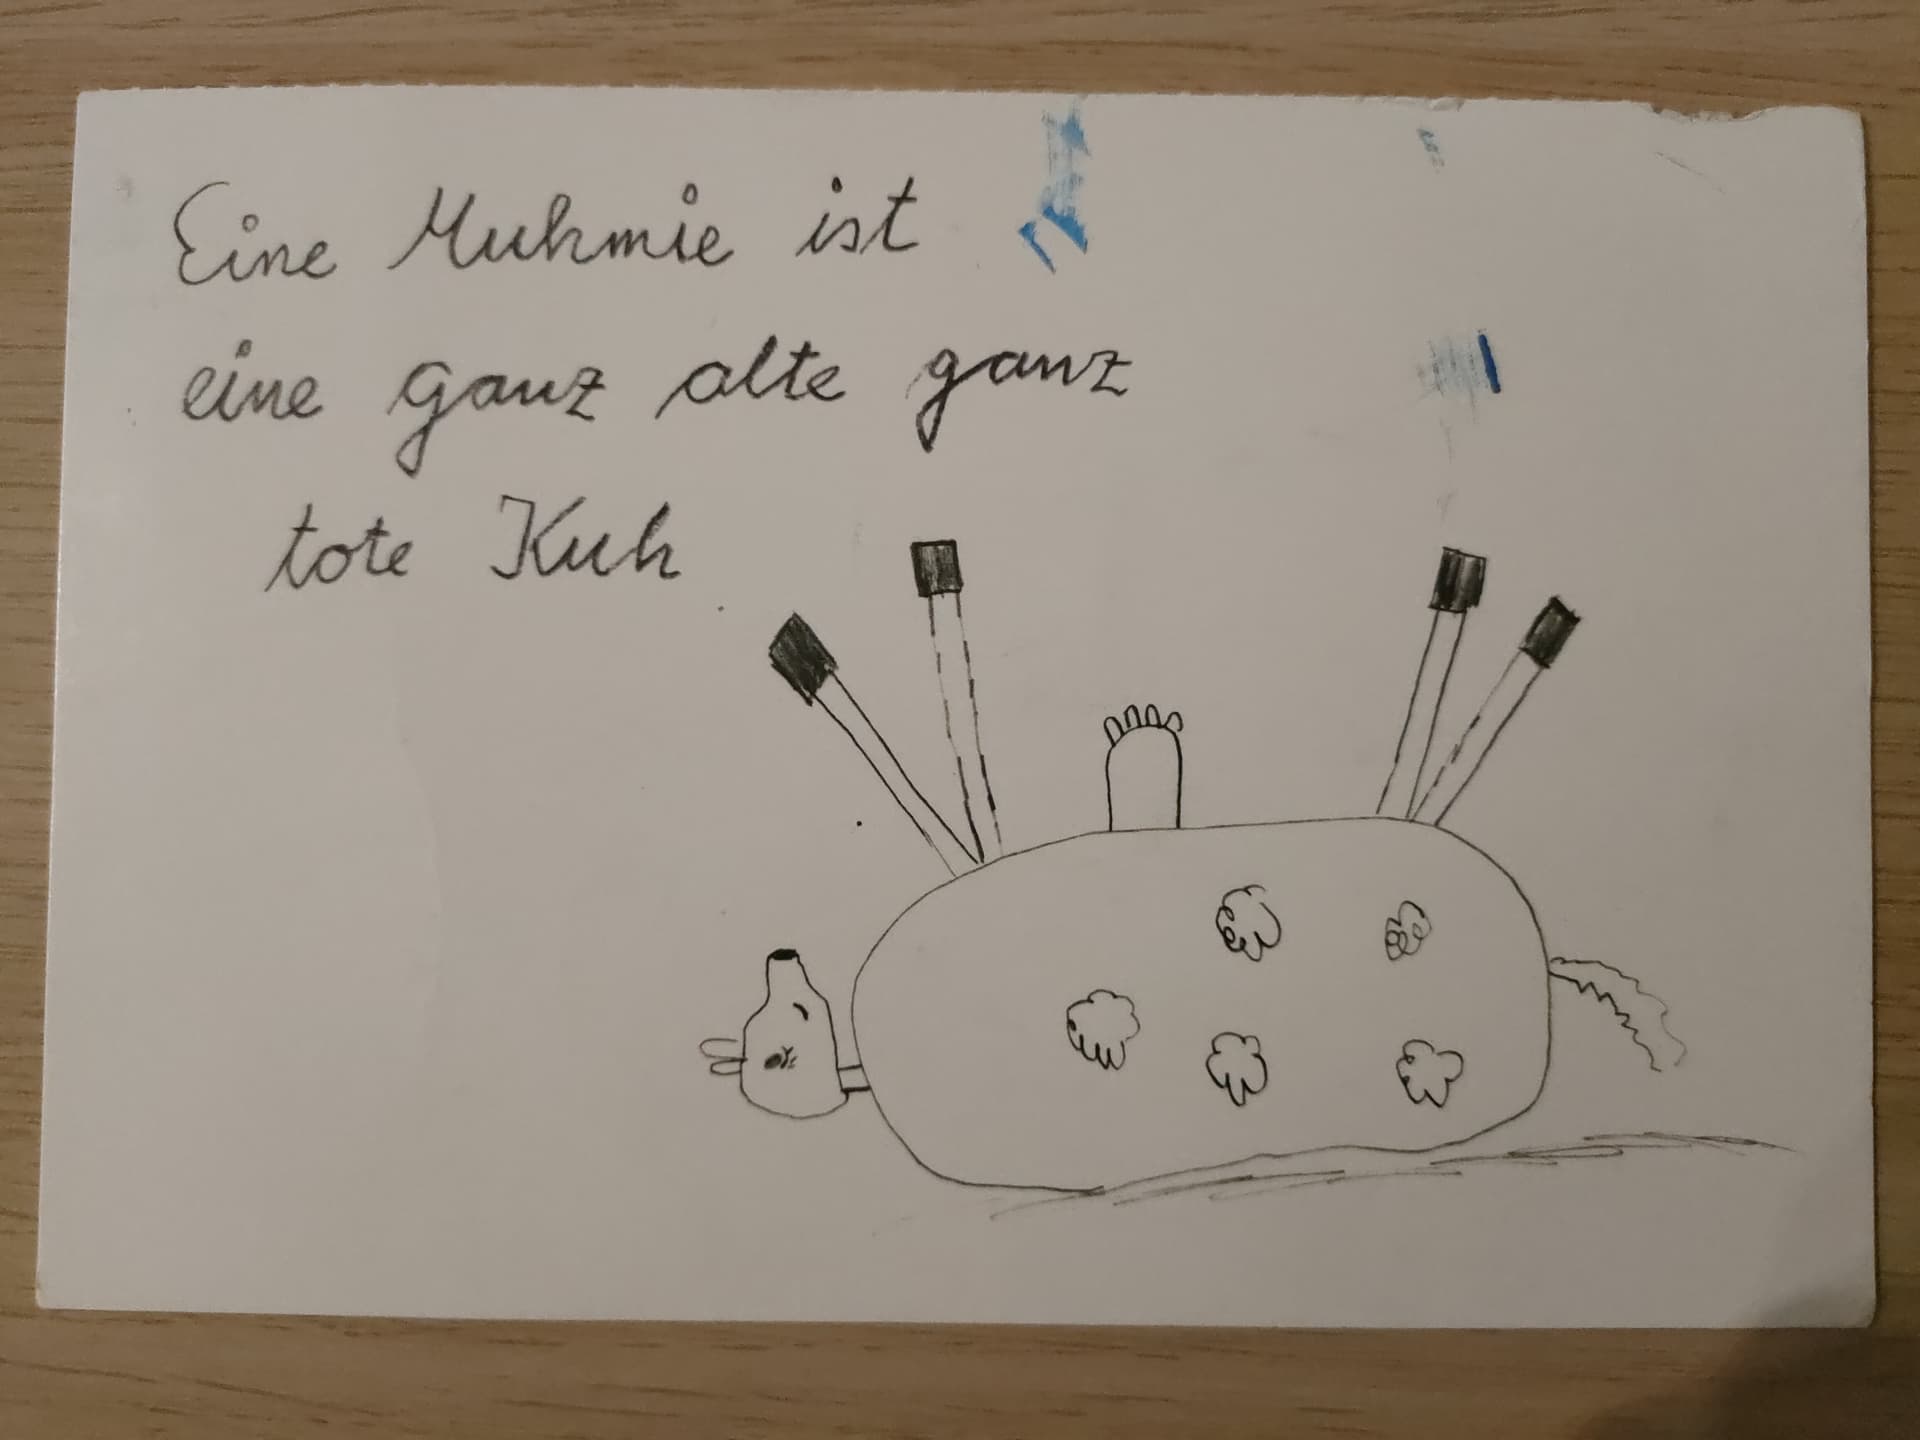 Eine Muhmie ist
eine ganz alte ganz
tote Kuh